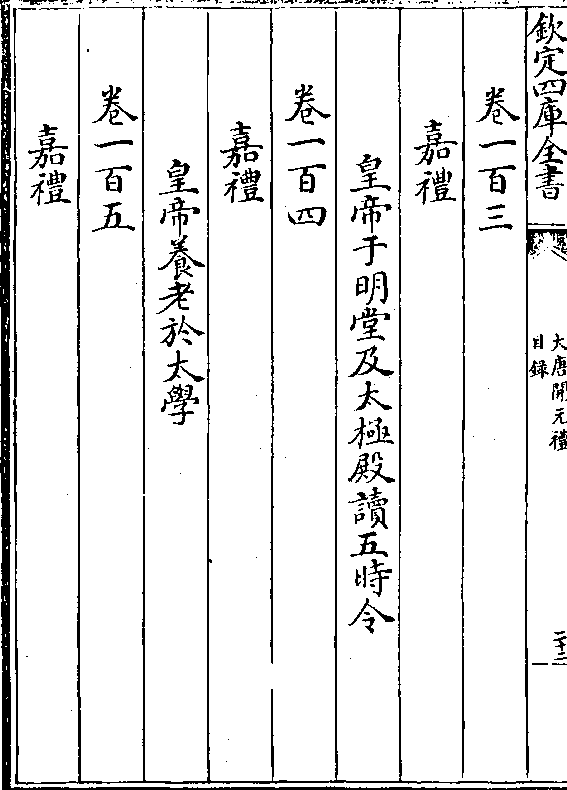 欽定四庫全書
大唐開元禮
目録
卷一百三
嘉禮
皇帝于明堂及太極殿讀五時令
卷一百四
嘉禮
皇帝養老於太學
卷一百五
嘉禮